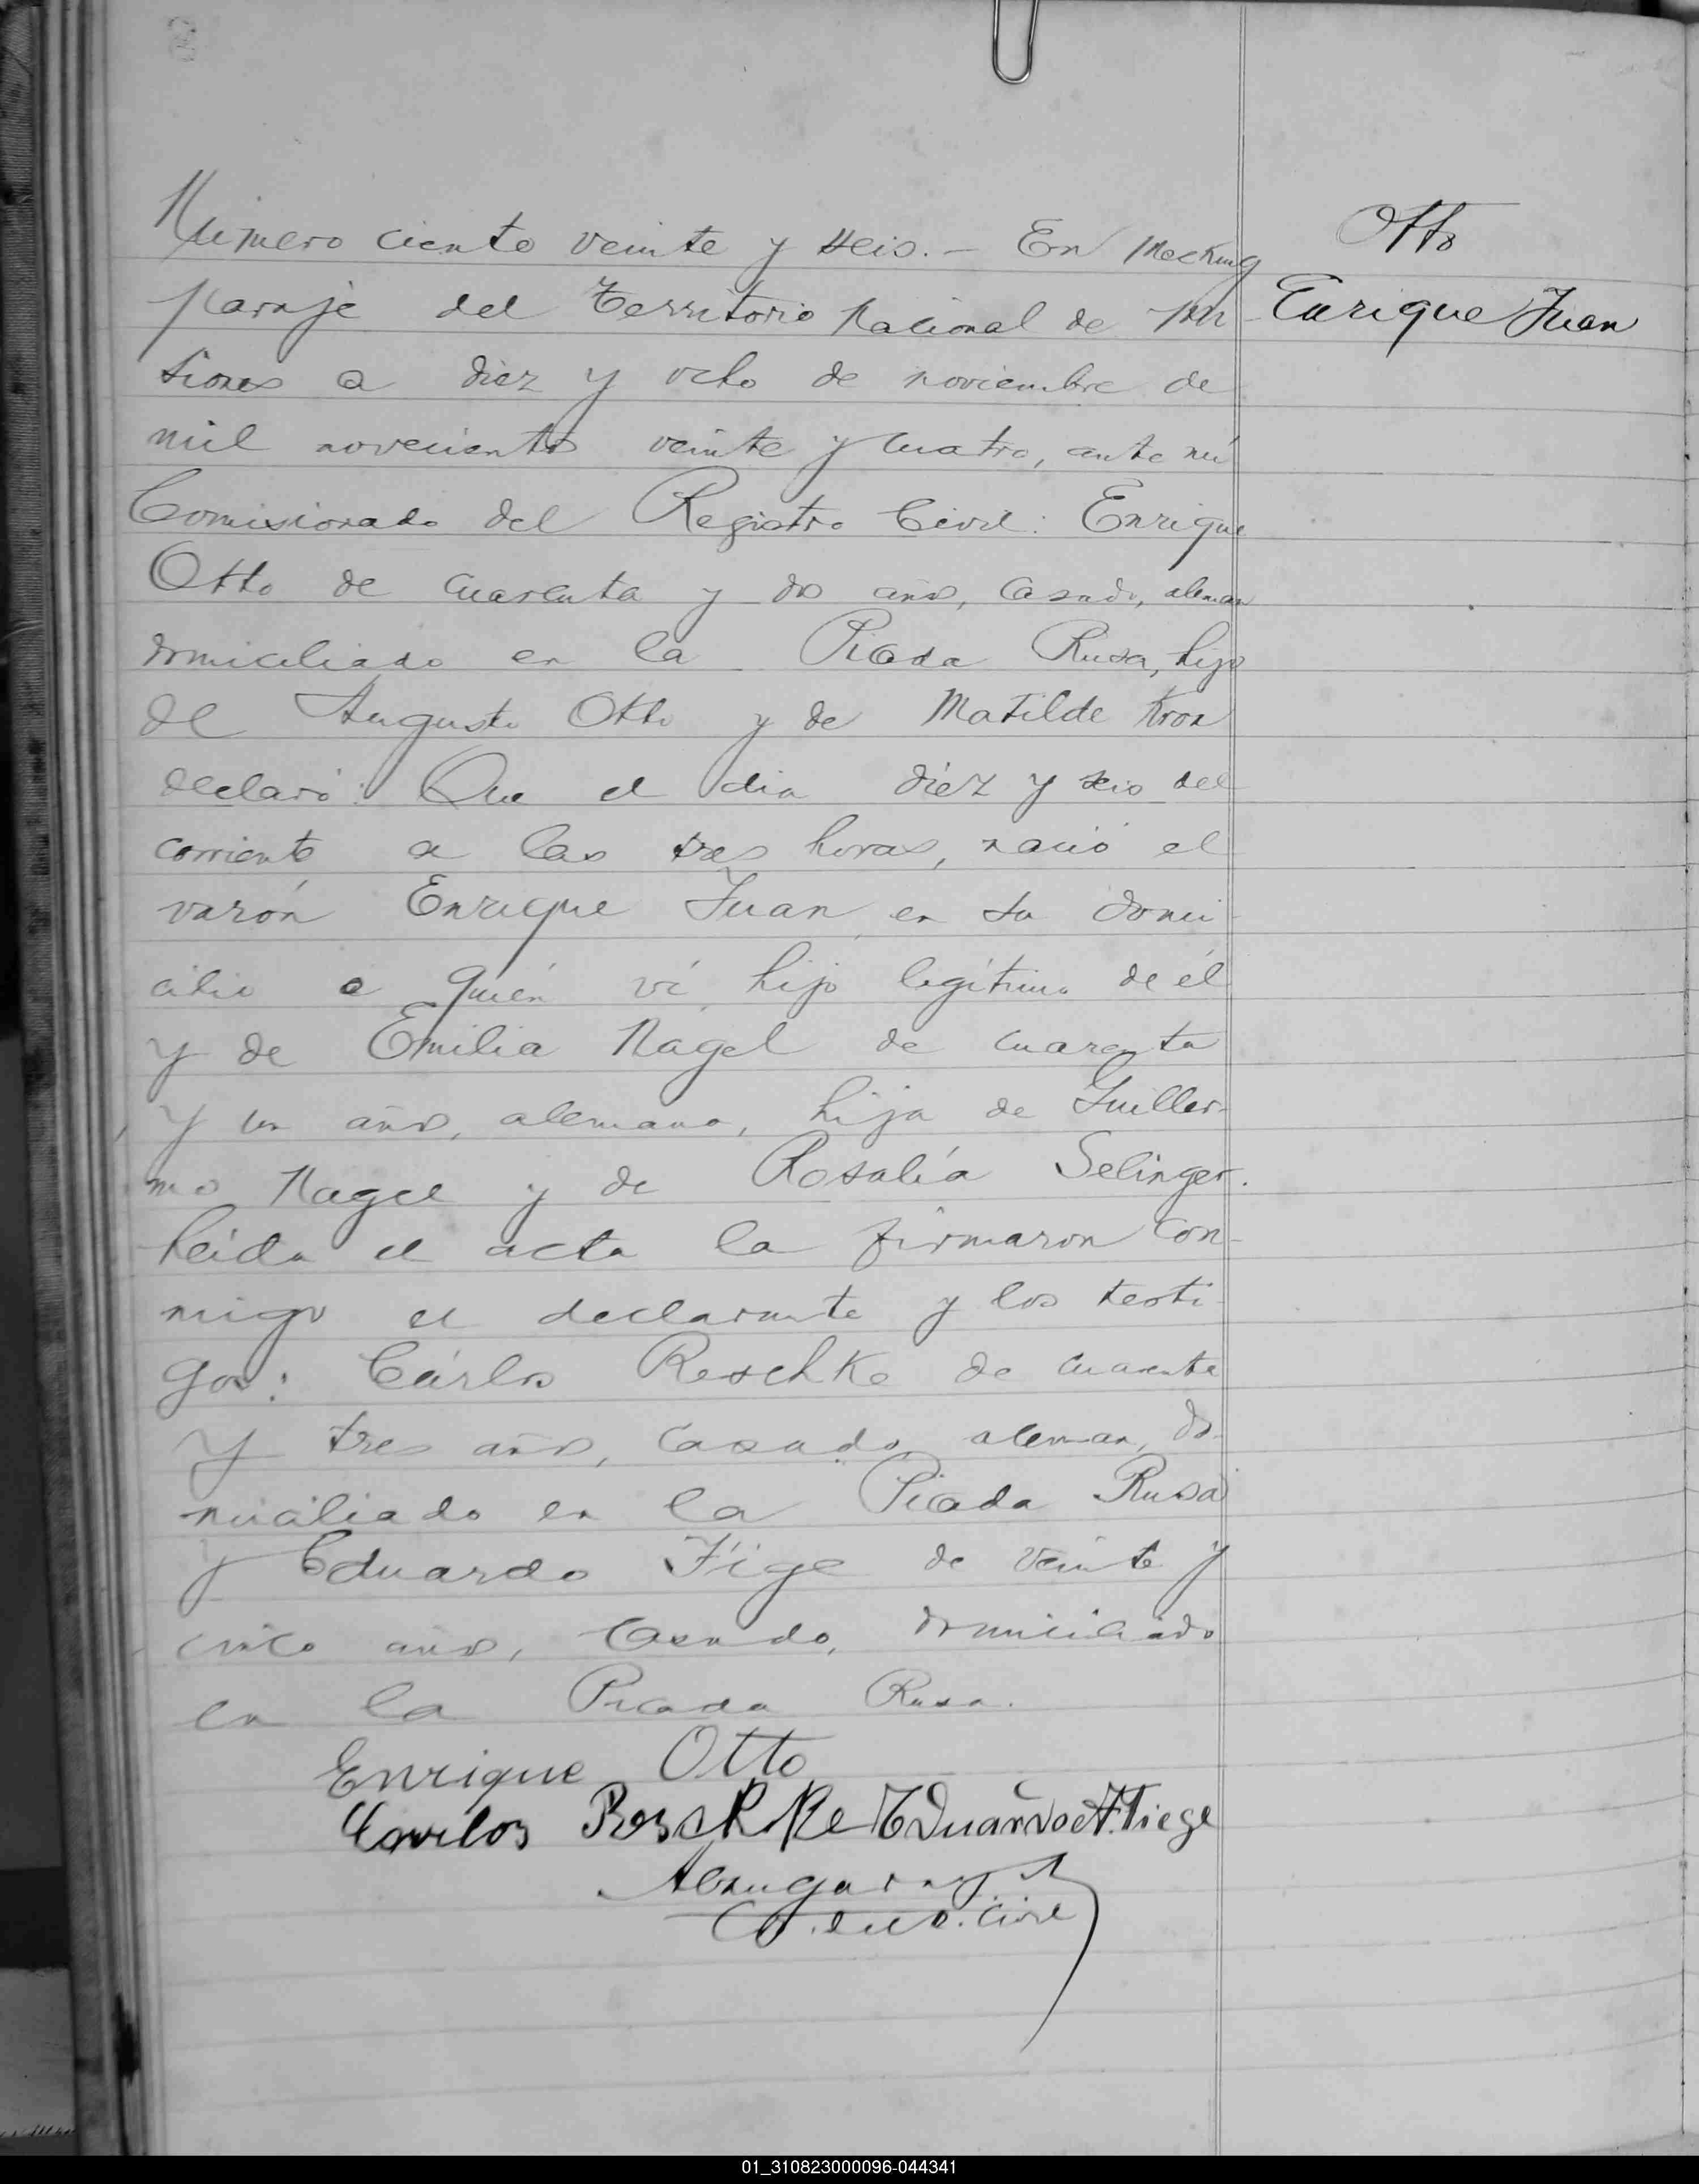 Número ciento veinte y seis.- En Mecking
Otto
paraje del Territorio Nacional de Mi-
Enrique Juan
siones a diez y ocho de noviembre de
mil novecientos veinte y cuatro, ante mí
Comisionado del Registro Civil: Enrique
Otto de cuarenta y dos años, casado, aleman
domiciliado en la Picada Rusa, hijo
de Augusto Otto y de Matilde Kron
declaró: Que el dia diez y seis del
corriente a las tres horas, nació el
varón Enrique Juan, en su domi-
cilio a quién ví, hijo legítimo de él
y de Emilia Nagel de cuarenta
y un años, alemana, hija de Guiller-
mo Nagel y de Rosalía Selinger.
Leida el acta la firmaron con-
migo el declarante y los testi-
gos: Cárlos Reschke de cuarenta
y tres años, casado, aleman, do-
miciliado en la Picada Rusa
y Eduardo Fige de veinte y
cinco años, casado, domiciliado
en la Picada Rusa.
Enrique Otto
Carlos Reschke Eduardo Tiege
Civil
01_310823000096-044341